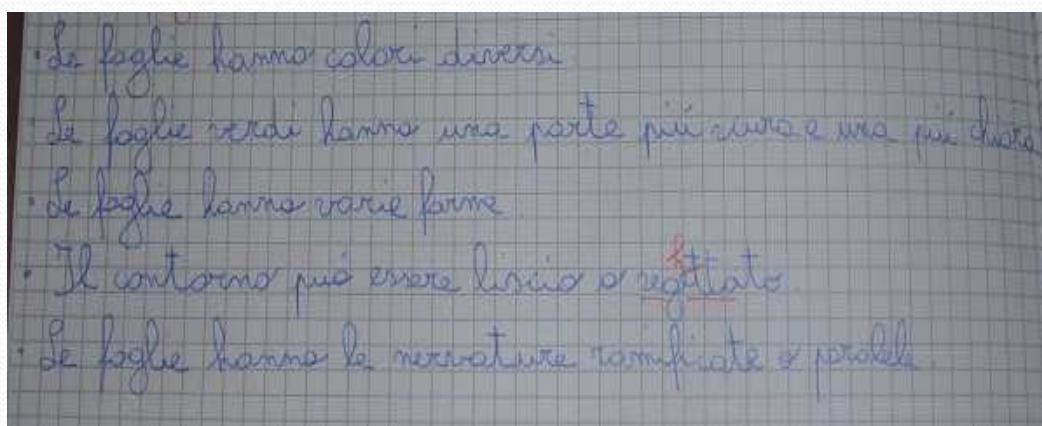 · Le foglie hanno colori diversi
Le foglie verdi hanno una parte più scura e una più chiara
· Le foglie hanno varie forme.
· Il contorno può essere liscio o segttato.
· Le foglie hanno le nervature ramificate o parallele.